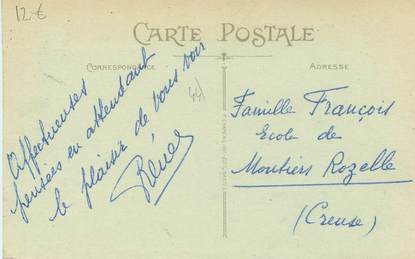 12.€
CARTE POSTALE
CORRESPONDANCE
ADRESSE
44
Affectueuses
pensées en attendant
le plaisir de vous voir
Renée
Famille François
Ecole de
Moutiers Rozelle
(Creuse)